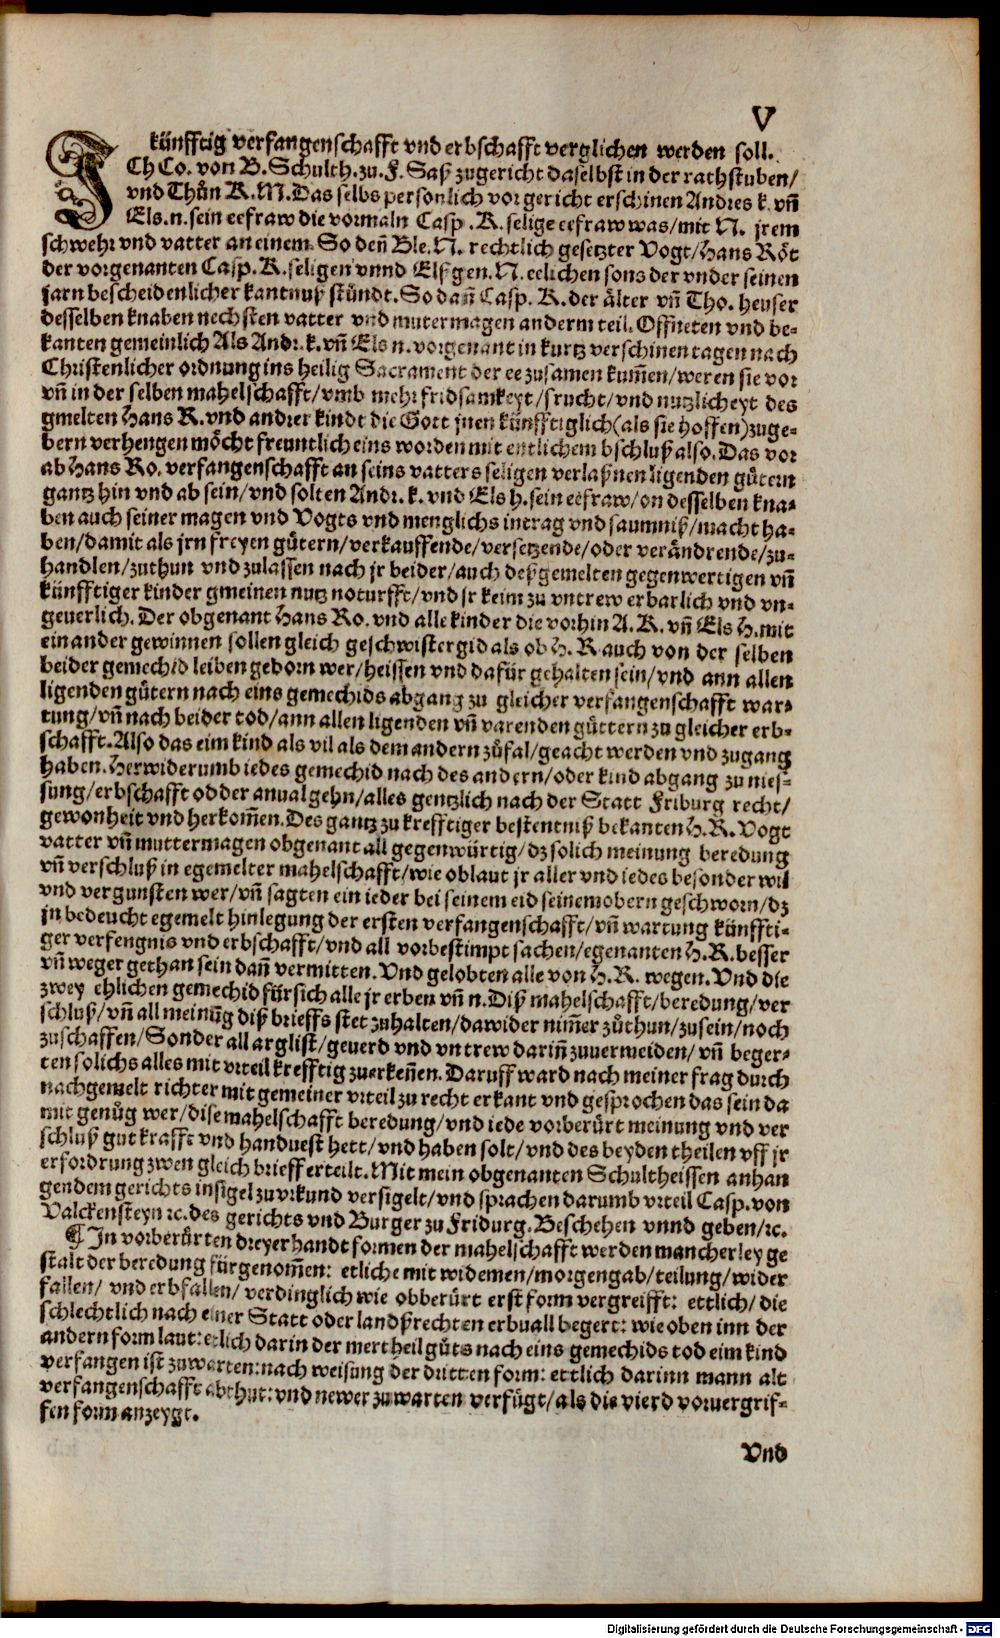 V
künfftig verfangenschafft vnd erbschafft verglichen werden soll.
ICh Co. von B. Schulth. zu. F. Saß zugericht daselbst in der rathstuben/
vnd Thůn K. M. Das selbs personlich vor gericht erschinen Andres k. vñ
Els. n. sein eefraw die vormaln Casp. K. selige eefraw was/mit N. jrem
schwehr vnd vatter an einem. So deñ Ble. N. rechtlich gesetzter Vogt/Hans Rőt
der vorgenanten Casp. K. seligen vnnd Elß gen. N. eelichen sons der vnder seinen
jarn bescheidenlicher kantnuß stůndt. So dañ Casp. K. der ålter vñ Tho. heuser
desselben knaben nechsten vatter vnd mutermagen anderm teil. Offneten vnd be-
kanten gemeinlich Als Andr. k. vñ Els n. vorgenant in kurtz verschinen tagen nach
Christenlicher ordnung ins heilig Sacrament der ee zusamen kum̃en/weren sie vor
vñ in der selben mahelschafft/vmb mehr fridsamkeyt/frucht/vnd nutzlicheyt des
gmelten Hans R. vnd andrer kindt die Gott jnen künfftiglich(als sie hoffen)zuge-
bern verhengen mőcht freuntlich eins worden mit entlichem bschluß also. Das vor
ab Hans Ro. verfangenschafft an seins vatters seligen verlaßnen ligenden gůtern
gantz hin vnd ab sein/vnd solten Andr. k. vnd Els h. sein eefraw/on desselben kna-
ben auch seiner magen vnd Vogts vnd menglichs intrag vnd saumniß/macht ha-
ben/damit als jrn freyen gůtern/verkauffende/versetzende/oder veråndrende/zu-
handlen/zuthun vnd zulassen nach jr beider/auch deßgemelten gegenwertigen vñ
künfftiger kinder gmeinen nutz noturfft/vnd jr keim zu vntrew erbarlich vnd vn-
geuerlich. Der obgenant Hans Ro. vnd alle kinder die vorhin A. K. vñ Els H. mit
ein ander gewinnen sollen gleich geschwistergid als ob H. R auch von der selben
beider gemechid leiben geborn wer/heissen vnd dafür gehalten sein/vnd ann allen
ligenden gůtern nach eins gemechids abgang zu gleicher verfangenschafft war-
tung/vñ nach beider tod/ann allen ligenden vñ varenden gůttern zu gleicher erb-
schafft. Also das eim kind als vil als dem andern zůfal/geacht werden vnd zugang
haben. Herwiderumb iedes gemechid nach des andern/oder kind abgang zu nies-
sung/erbschafft od der anual gehn/alles gentzlich nach der Statt Friburg recht/
gewonheit vnd herkom̃en. Des gantz zu krefftiger bestentniß bekanten H. R. Vogt
vatter vñ muttermagen obgenant all gegenwürtig/dz solich meinung beredung
vñ verschluß in egemelter mahelschafft/wie oblaut jr aller vnd iedes besonder wil
vnd vergunsten wer/vñ sagten ein ieder bei seinem eid seinem obern geschworn/dz
jn bedeucht egemelt hinlegung der ersten verfangenschafft/vñ wartung künffti-
ger verfengnis vnd erbschafft/vnd all vorbestimpt sachen/egenanten H. R. besser
vñ weger gethan sein dañ vermitten. Vnd gelobten alle von H. R. wegen. Vnd die
zwey ehlichen gemechid für sich alle jr erben vñ n. Diß mahelschafft/beredung/ver
schluß/vñ all meinũg diß brieffs stet zuhalten/dawider nim̃er zůthun/zusein/noch
zuschaffen/Sonder all arglist/geuerd vnd vntrew dariñ zuuermeiden/vñ beger-
ten solichs alles mit vrteil krefftig zuerkeñen. Daruff ward nach meiner frag durch
nachgemelt richter mit gemeiner vrteil zu recht erkant vnd gesprochen das sein da
mit genůg wer/dise mahelschafft beredung/vnd iede vorberürt meinung vnd ver
schluß gut krafft vnd handuest hett/vnd haben solt/vnd des beyden theilen vff jr
erfordrung zwen gleich brieff erteilt. Mit mein obgenanten Schultheissen anhan
gendem gerichts insigel zu vrkund versigelt/vnd sprachen darumb vrteil Casp. von
Valckensteyn ꝛc. des gerichts vnd Burger zu Friburg. Beschehen vnnd geben/ꝛc.
¶ In vorberürten dreyerhandt formen der mahelschafft werden mancherley ge
stalt der beredung fürgenom̃en: etliche mit widemen/morgengab/teilung/wider
fallen/ vnd erbfallen/ verdinglich wie obberürt erst form vergreifft: ettlich/ die
schlechtlich nach einer Statt oder landßrechten erbuall begert: wie oben inn der
andern form laut: etlich darin der mertheil gůts nach eins gemechids tod eim kind
verfangen ist zuwarten: nach weisung der dritten form: ettlich darinn mann alt
verfangenschafft abthut: vnd newer zu warten verfügt/als die vierd voruergrif-
fen form anzeygt.
Vnd
Digitalisierung gefördert durch die Deutsche Forschungsgemeinschaft - DFG